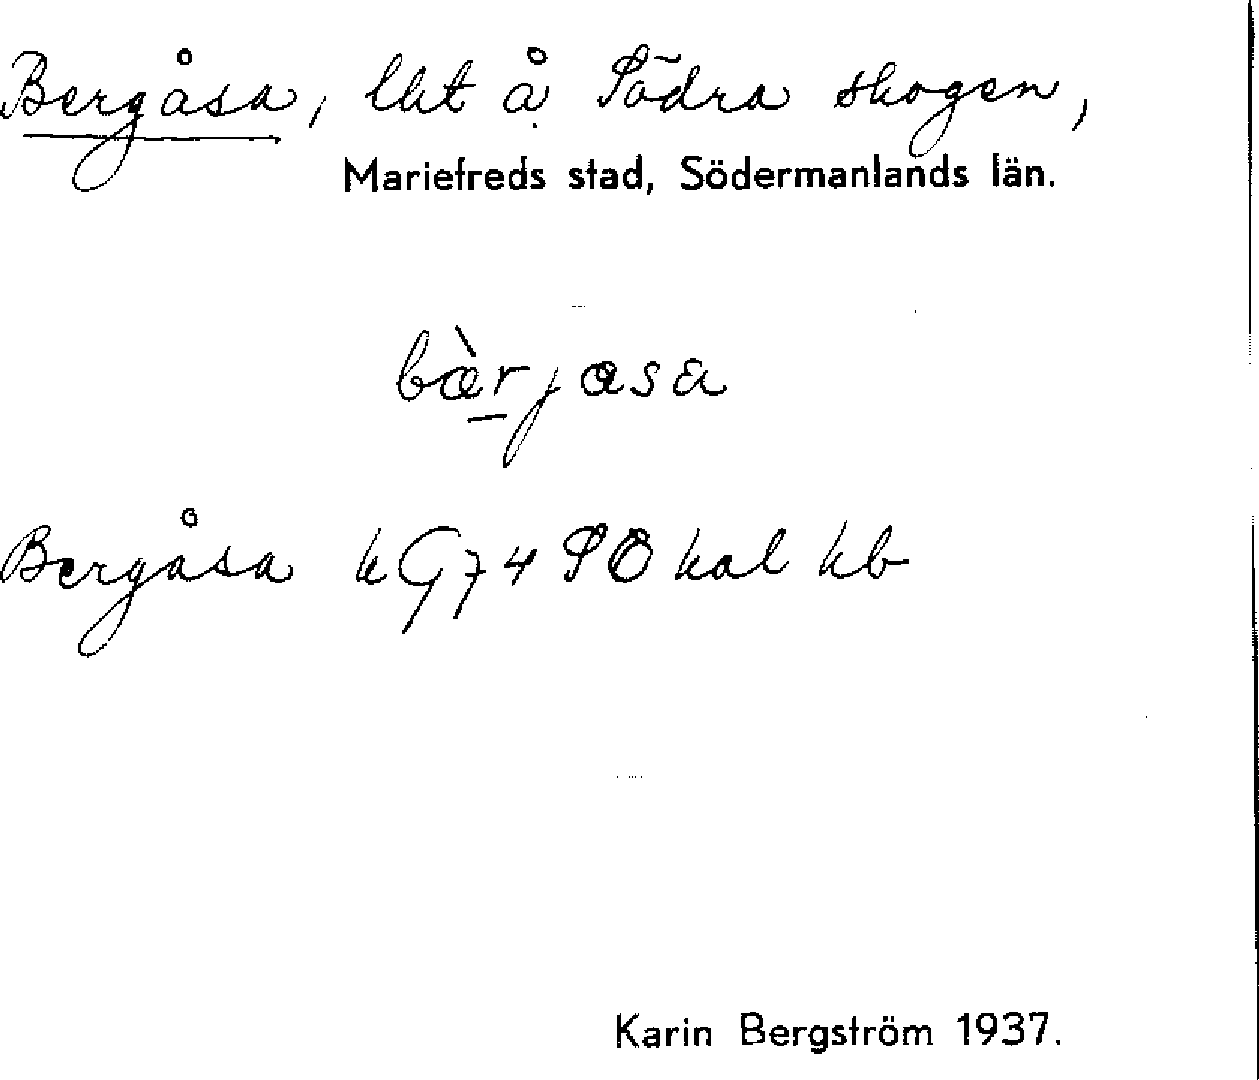 Bergåsa, lht å Södra skogen,
Mariefreds stad, Södermanlands län.
bæ̀rjasa
Bergåsa kG74 SO kal kb
Karin Bergström 1937.